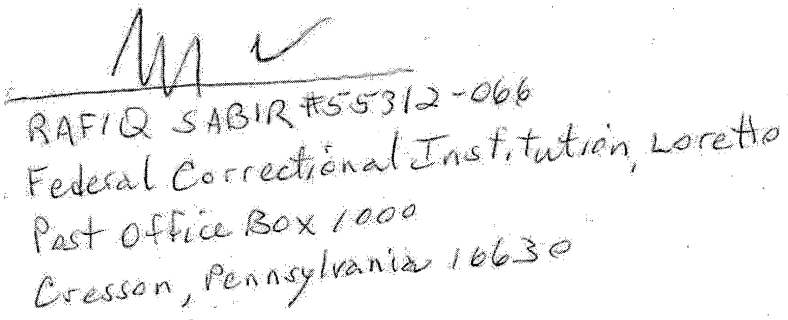 RAFIQ SABIR #55312-066
Federal Correctional Institution, Loretto
Post Office Box 1000
Cresson, Pennsylvania 16630